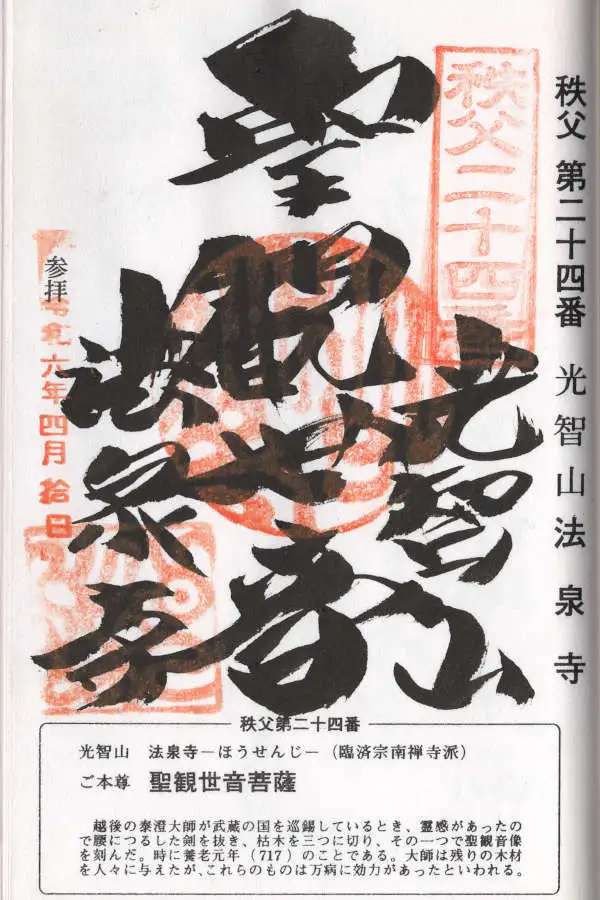 秩父 第二十四番 光智山法泉寺
秩父二十四番
光智山
聖
観世音
法泉寺
参拝
令和六年四月拾日
秩父第二十四番
光智山 法泉寺－ほうせんじ－（臨済宗南禅寺派）
ご本尊 聖観世音菩薩
越後の泰澄大師が武蔵の国を巡錫しているとき、霊感があったの
で腰につるした剣を抜き、枯木を三つに切り、その一つで聖観音像
を刻んだ。時に養老元年（717）のことである。大師は残りの木材
を人々に与えたが、これらのものは万病に効力があったといわれる。